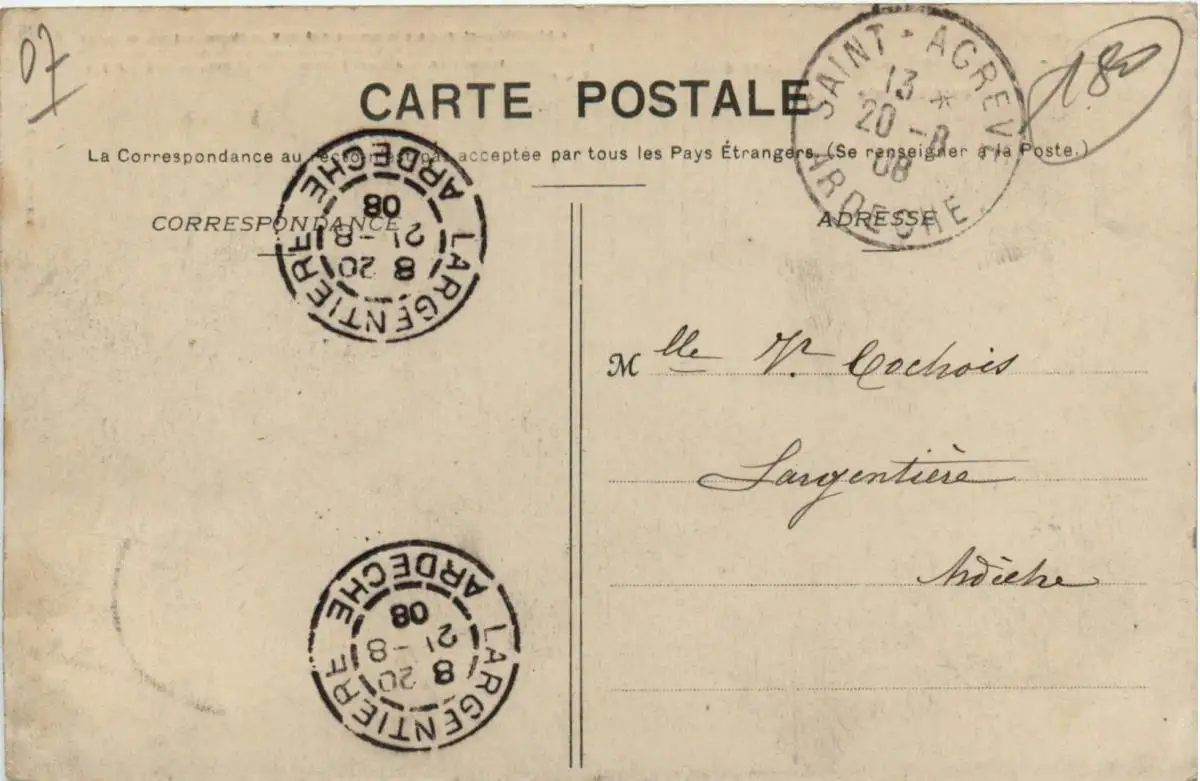 07
180
CARTE POSTALE
La Correspondance au recto n'est pas acceptée par tous les Pays Étrangers. (Se renseigner à la Poste.)
CORRESPONDANCE
ADRESSE
SAINT-AGREVE
13 *
20 -8
08
ARDECHE
LARGENTIERE
8 20
21 -8
08
ARDECHE
Mlle V. Cochois
Largentière
Ardèche
LARGENTIERE
8 20
21 -8
08
ARDECHE